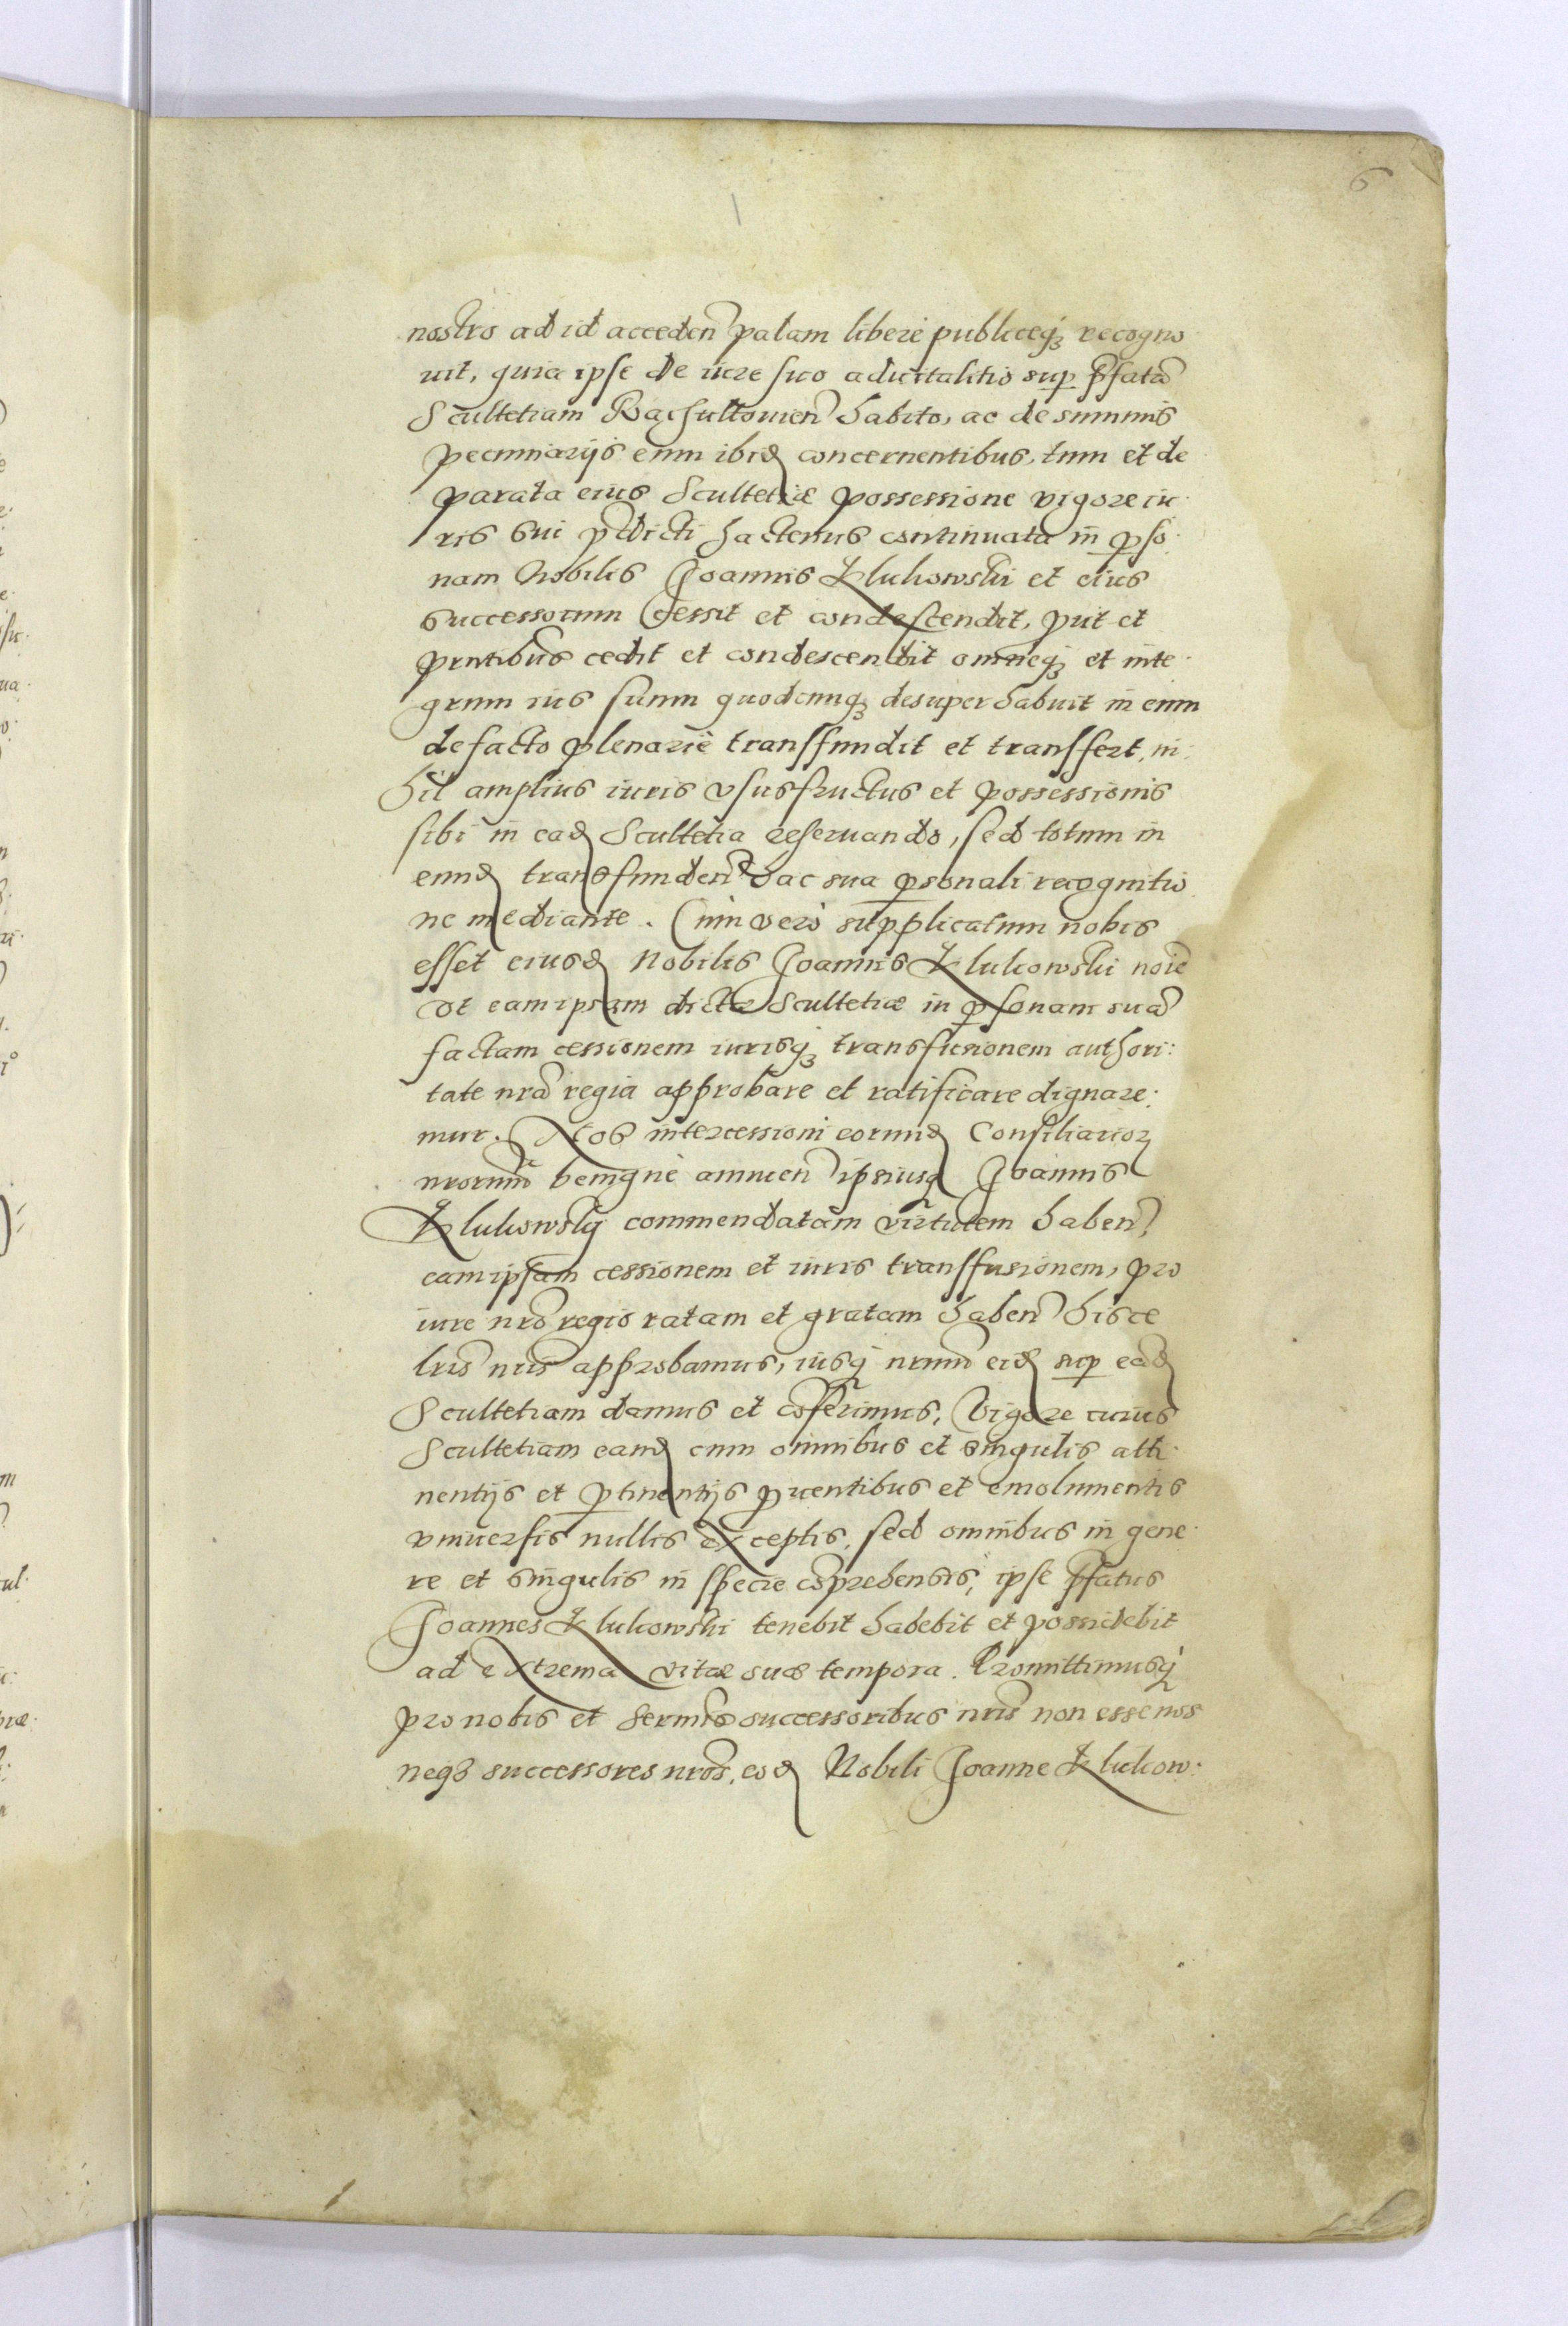 6
nostro ad id acceden̄ palam libere publiceqꝫ recogno
uit, quia ipse de iure suo aduitalitio suꝑ p̄fatā
Scultetiam habito, ac de summis
pecuniarijs eum ibid concernentibus, tum et de
parata eius Scultetiæ possessione vigore iu
ris sui p̄dicti hactenus continuata in ꝑso
nam Nobilis Joannis Klukowski et eius
successorum cessit et condescendit, put et
pn̄tibus cedit et condescendit omneqꝫ et inte
grum ius suum quodcunqꝫ desuper habuit in eum
de facto plenarie transfundit et transfert, ni
hil amplius iuris vsusfructus et possessionis
sibi in ead Scultetia reseruando, sed totum in
eund transfunden̄ hac sua ꝑsonali recognitio
ne mediante. Cum vero supplicatum nobis
esset eiusd Nobilis Joannis Klukowski noīe
vt eam ipsam dictæ Scultetiæ in ꝑsonam suā
factam cessionem iurisqꝫ transfusionem authori:
tate nrā regia approbare et ratificare dignare:
mur. Nos intercessioni eorund Consiliarioꝝ
nrorum̄ benigne annuen̄ ipsiusqꝫ Joannis
Klukowskij commendatam virtutem haben̄,
eam ipsam cessionem et iuris transfusionem, pro
iure nrō regio ratam et gratam haben̄ hisce
lris̄ nris̄ approbamus, iusqꝫ nrum̄ eid suꝑ ead
Scultetiam damus et cōferimus, Vigore cuius
Scultetiam eand cum omnibus et singulis atti
nentijs et ꝑtinentijs ꝓuentibus et emolumentis
vniuersis nullis exceptis, sed omnibus in gene
re et singulis in specie cōprehensis, ipse p̄fatus
Joannes Klukowski tenebit habebit et possidebit
ad extrema vitæ suæ tempora. Promittimusqꝫ
pro nobis et Sermīs successoribus nris̄ non esse nos
neqꝫ successores nros̄, eod Nobili Joanne Klukow: